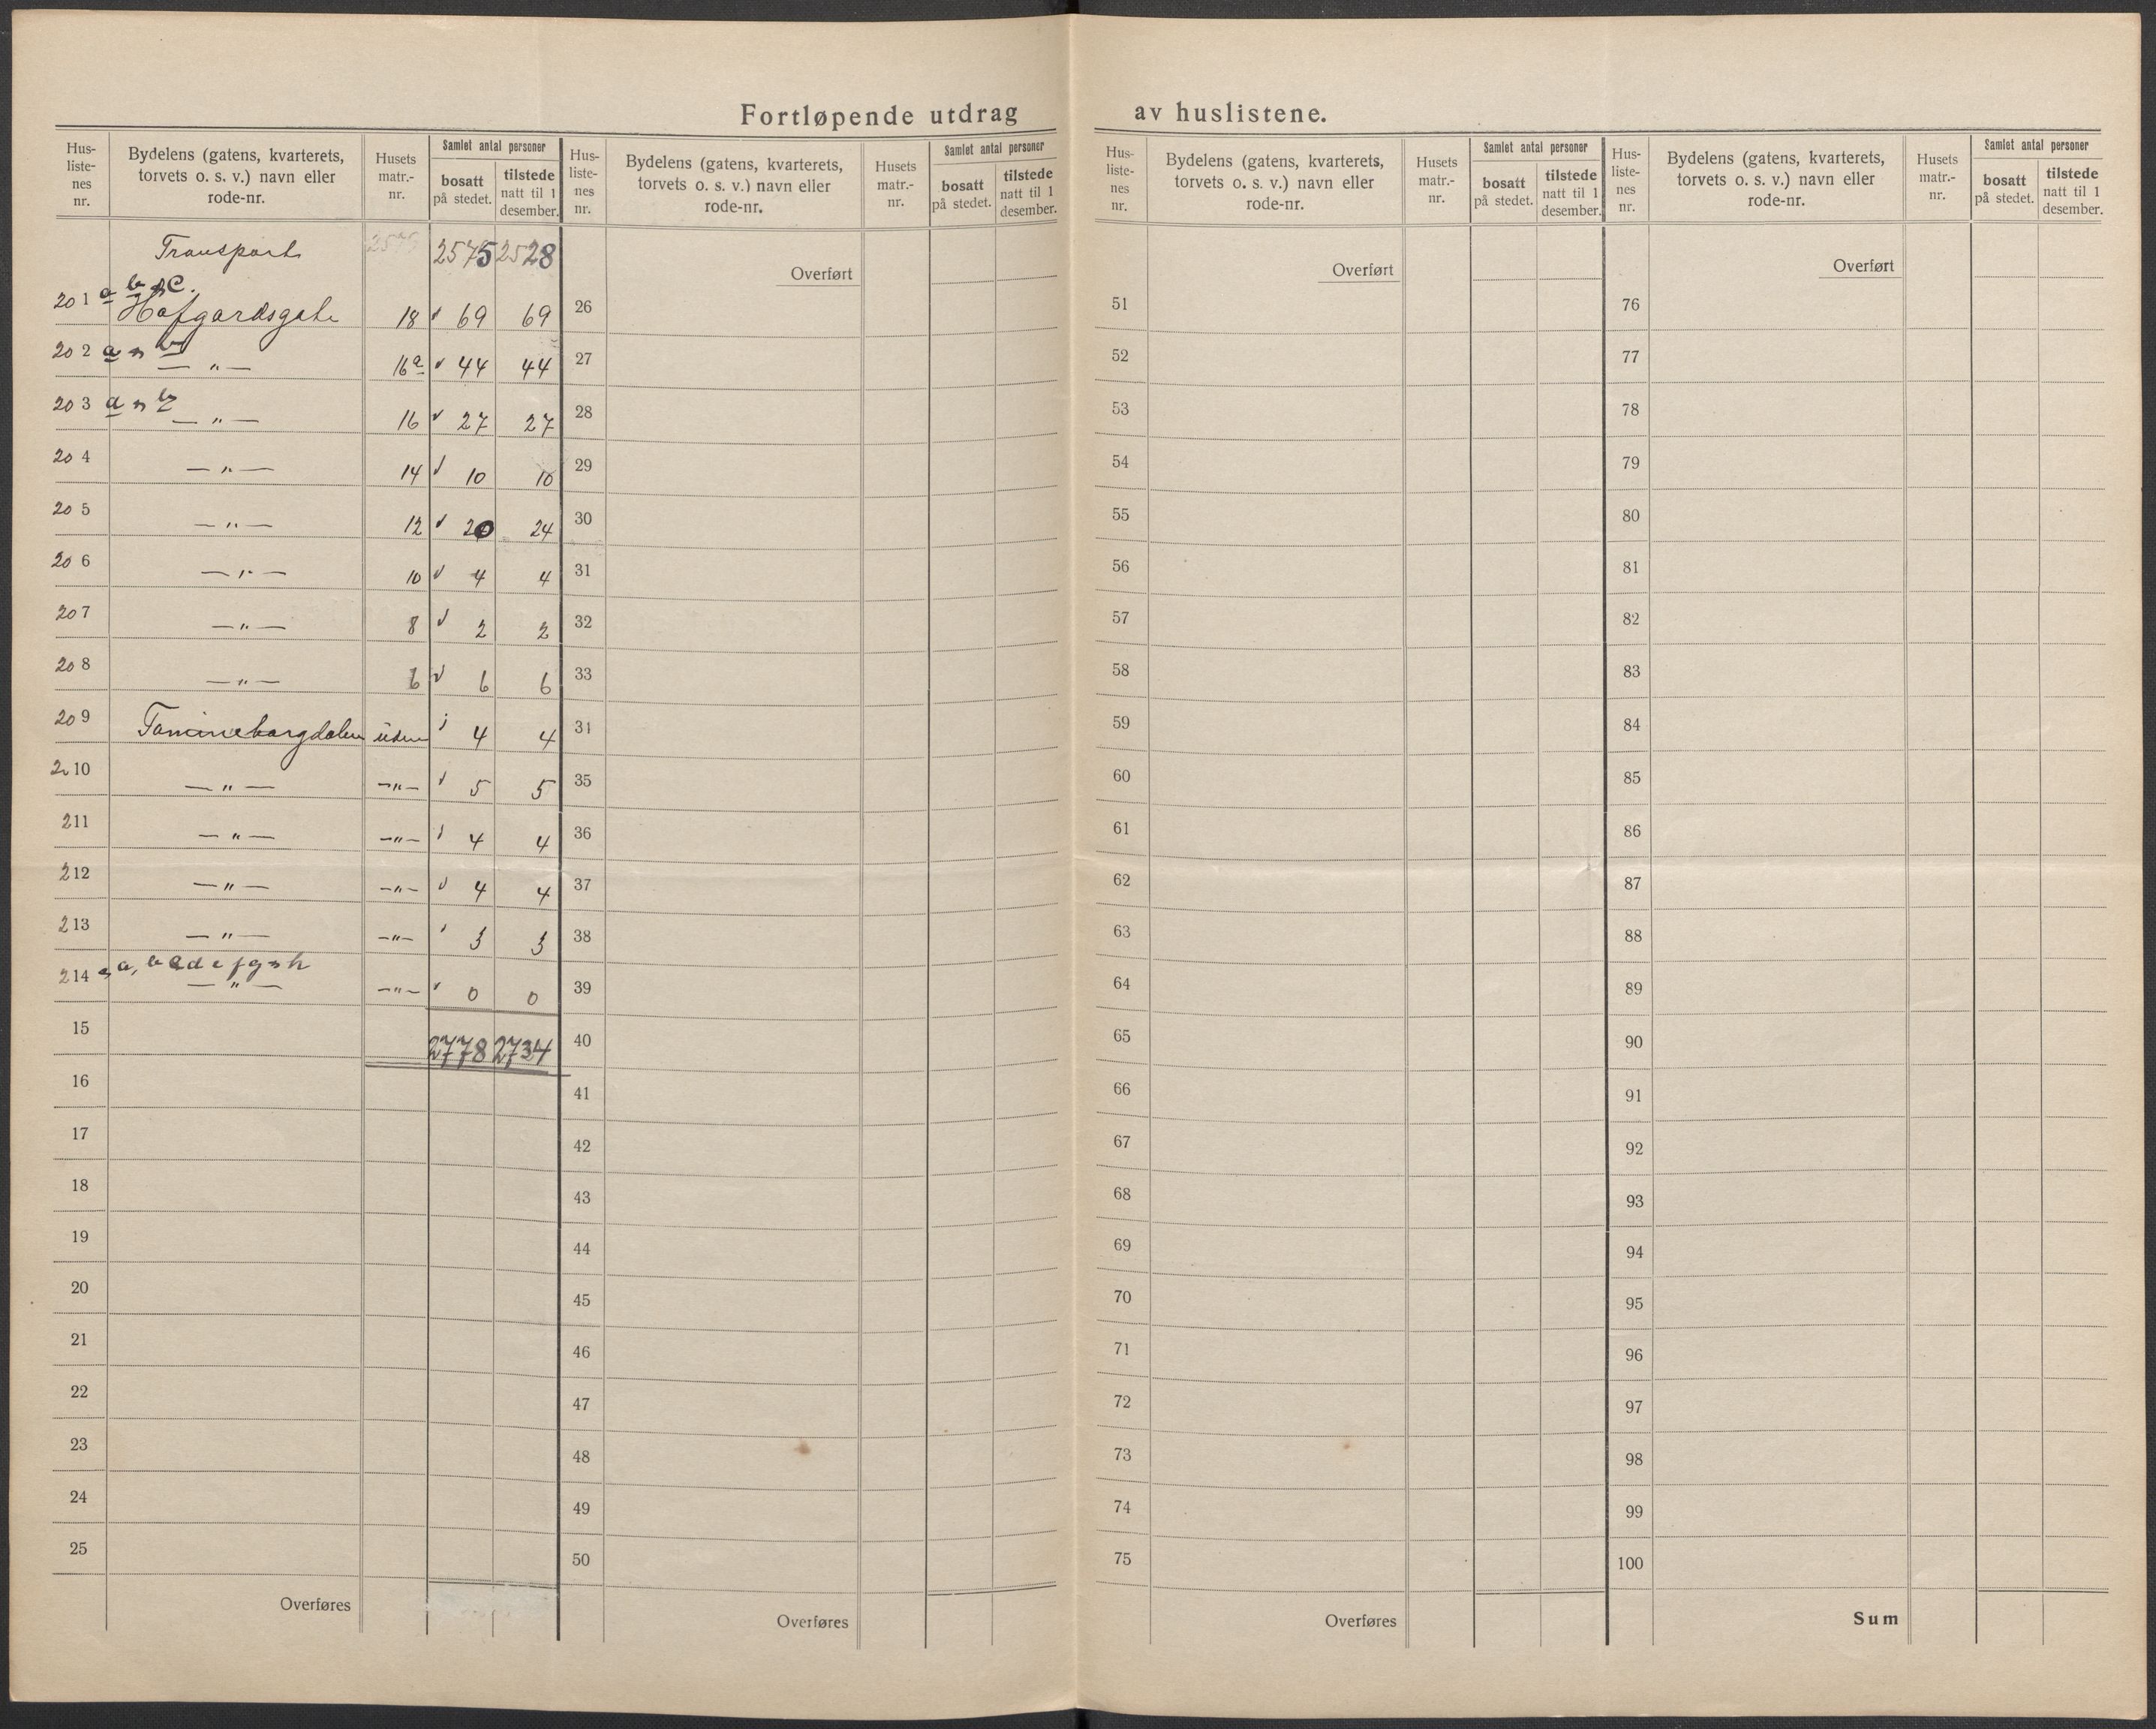 Fortløpende utdrag av huslistene.
Hus-liste-nes nr. | Bydelens (gatens, kvarterets, torvets o. s. v.) navn eller rode-nr. | Husets matr.-nr. | Samlet antal personer | bosatt på stedet. | tilstede natt til 1 desember.
Transport 2575 2575 2528
201 a b n c. Hofgardsgate 18 69 69
202 a n b — " — 16a 44 44
203 a n b — " — 16 27 27
204 — " — 14 10 10
205 — " — 12 20 24
206 — " — 10 4 4
207 — " — 8 2 2
208 — " — 6 6 6
209 4 4
210 — " — — " — 5 5
211 — " — — " — 4 4
212 — " — — " — 4 4
213 — " — — " — 3 3
214 a, b c d e f g n h — " — — " — 0 0
15 2778 2734
16
17
18
19
20
21
22
23
24
25
Overføres
Hus-liste-nes nr. | Bydelens (gatens, kvarterets, torvets o. s. v.) navn eller rode-nr. | Husets matr.-nr. | Samlet antal personer | bosatt på stedet. | tilstede natt til 1 desember.
Overført
26
27
28
29
30
31
32
33
31
35
36
37
38
39
40
41
42
43
44
45
46
47
48
49
50
Overføres
Hus-liste-nes nr. | Bydelens (gatens, kvarterets, torvets o. s. v.) navn eller rode-nr. | Husets matr.-nr. | Samlet antal personer | bosatt på stedet. | tilstede natt til 1 desember.
Overført
51
52
53
54
55
56
57
58
59
60
61
62
63
64
65
66
67
68
69
70
71
72
73
74
75
Overføres
Hus-liste-nes nr. | Bydelens (gatens, kvarterets, torvets o. s. v.) navn eller rode-nr. | Husets matr.-nr. | Samlet antal personer | bosatt på stedet. | tilstede natt til 1 desember.
Overført
76
77
78
79
80
81
82
83
84
85
86
87
88
89
90
91
92
93
94
95
96
97
98
99
100
Sum